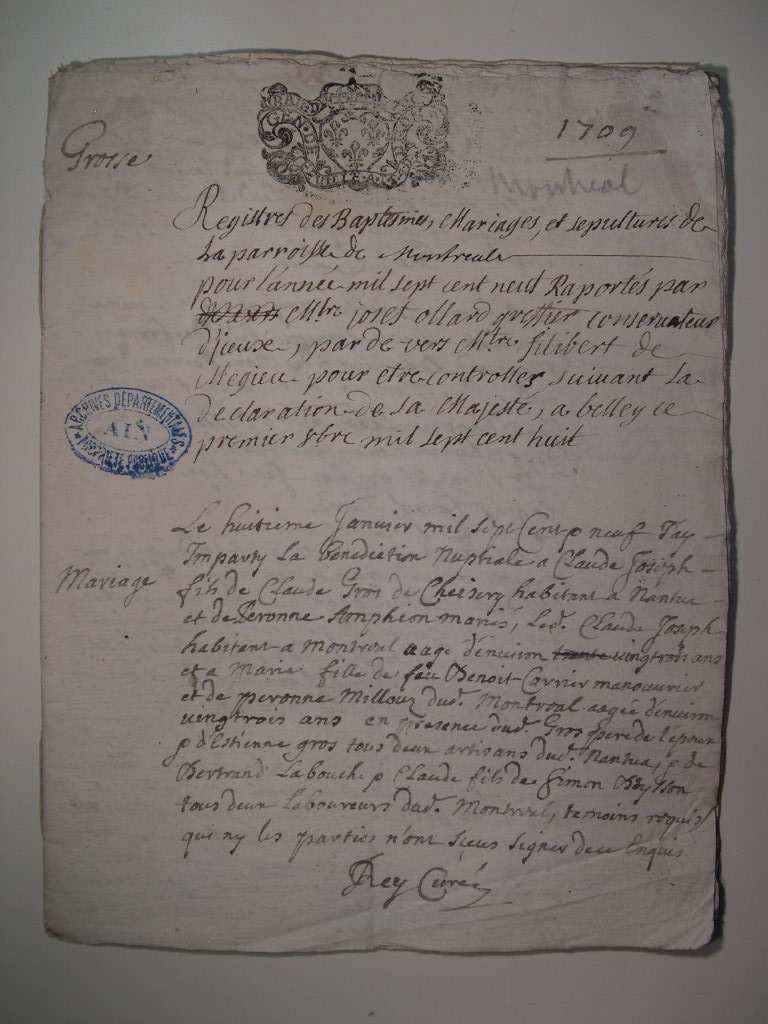 Grosse
GEN. DE
1709
Montréal
Registres des Baptesmes, Mariages, et sepultures de
La parroisse de Montreale
pour l'année mil sept cent neuf Raportés par
Mtre josef ollard greffier conservateur
d'jceux, par de vers Mtre filibert de
Megieu pour etre controlles suivant la
declaration de sa Majesté, a belley ce
premier 8bre mil sept cent huit
ARCHIVES DÉPARTEMENTALES
AIN
PROPRIÉTÉ PUBLIQUE
Le huitieme Janvier mil sept Cent neuf J'ay
Imparty La benediction Nuptiale a Claude Joseph
Mariage
fils de Claude Gros de Cheisery habitant a Nantua
et de Peronne Amphion mariés, Led. Claude Joseph
habitant a Montreal aagé d'environ trante vingtrois ans
et a Marie fille de feu Benoit Carrier manouvrier
et de peronne Millouz dud. Montreal aegée d'environ
vengtrois ans en presence dud. Gros pere de l'epoux
p d'Estienne gros tous deux artisans dud. Nantua, p de
Bertrand Labouche p Claude fils de Simon
tous deux Laboureurs dud. Montreal, temoins requis
qui ny les parties n'ont sceus signer de ce Enquis
Rey Curé